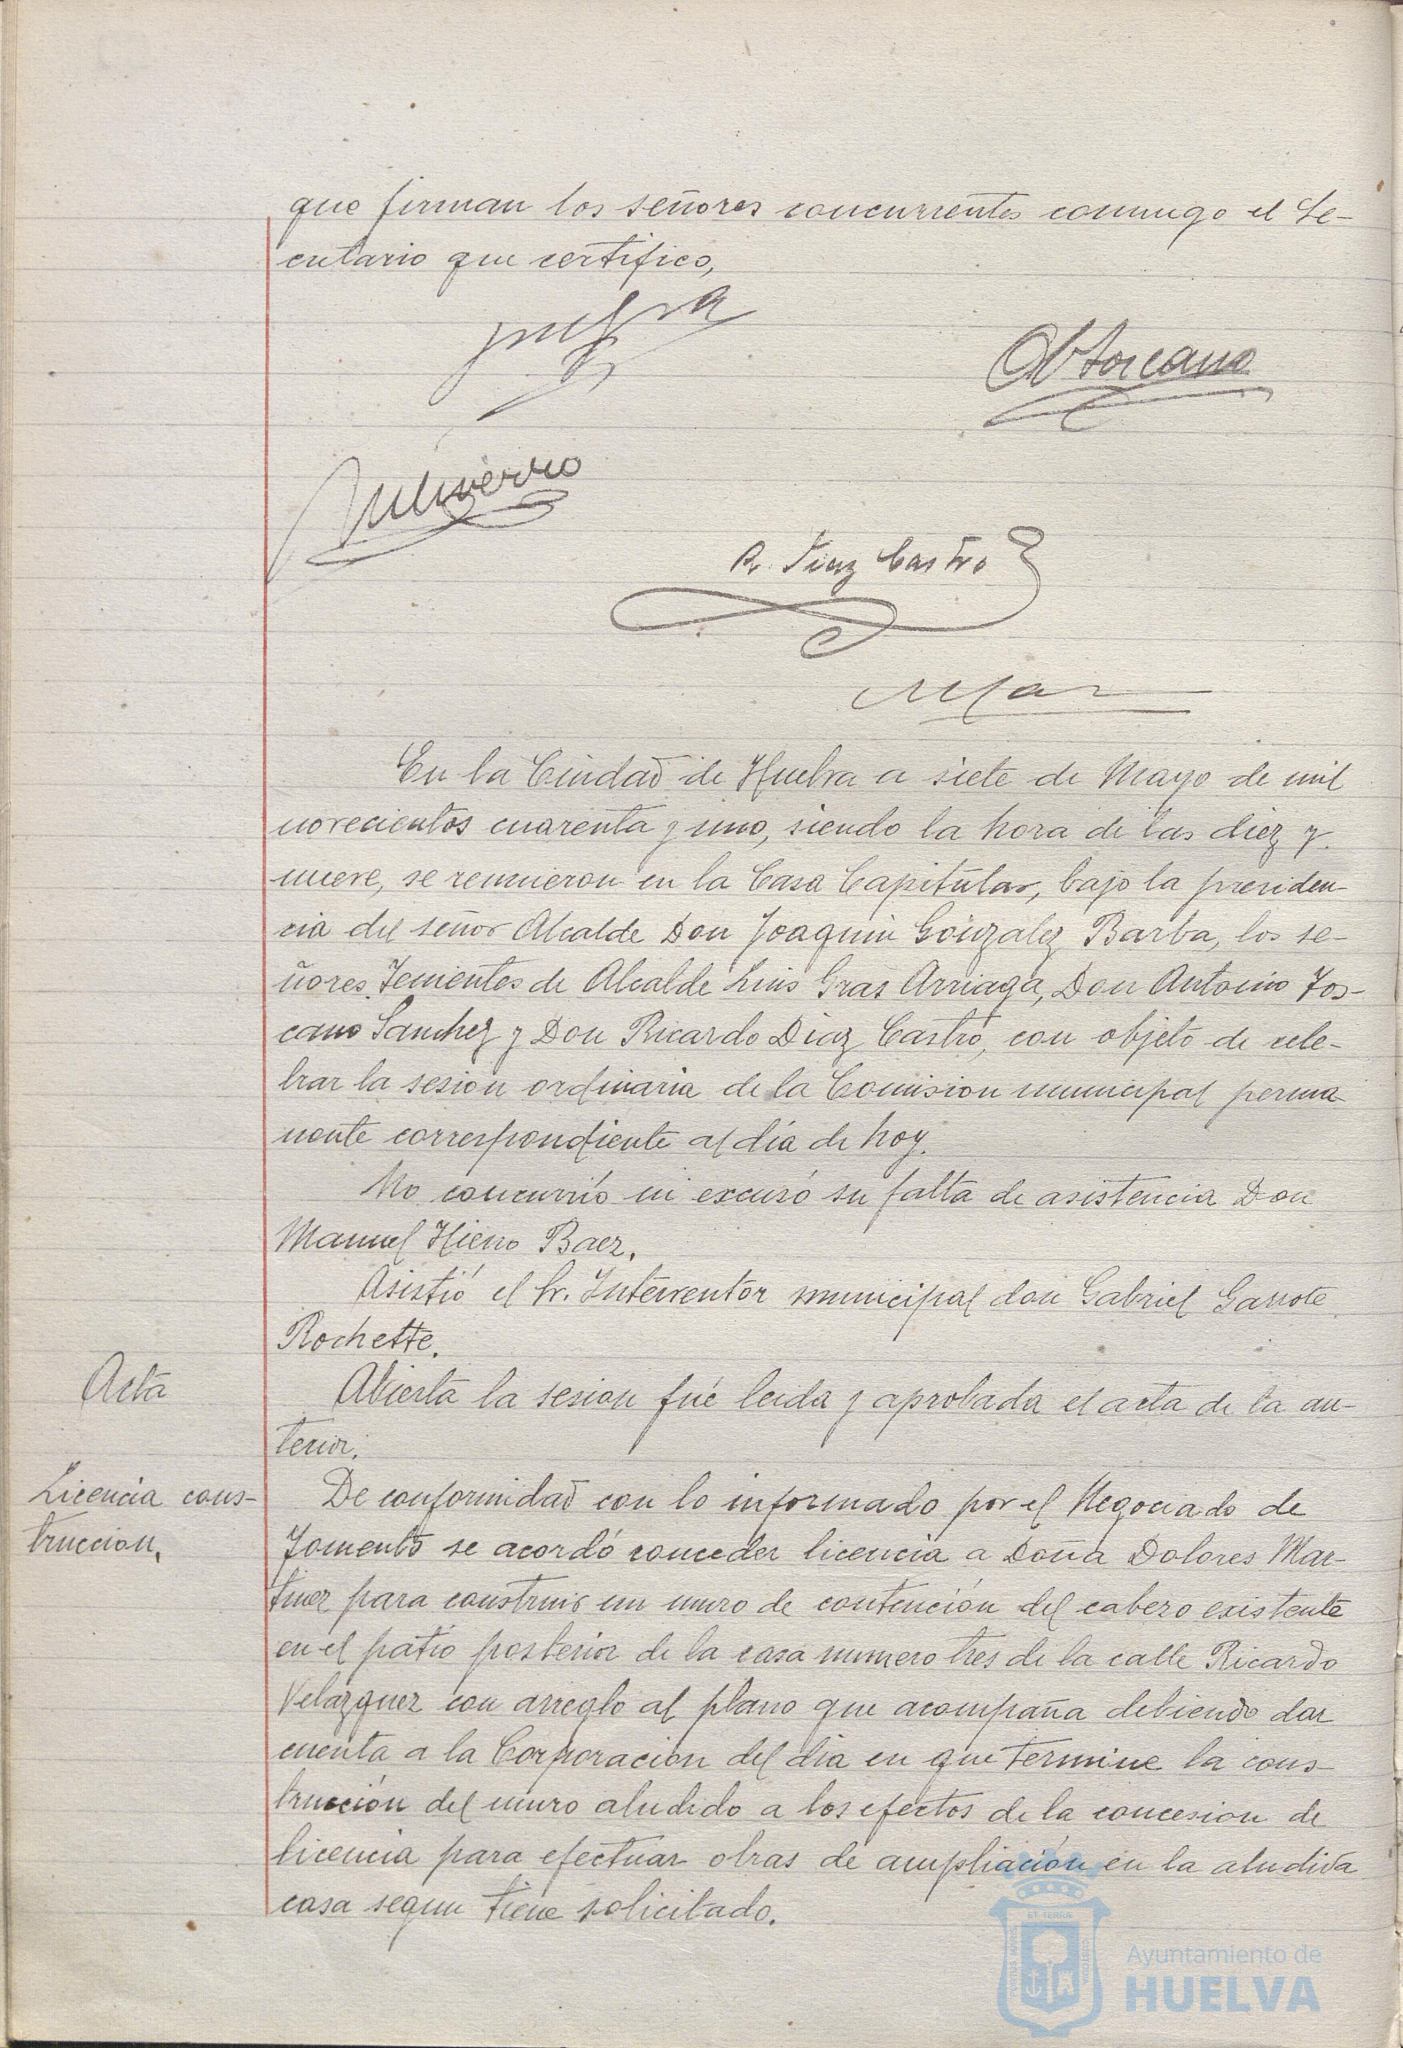 que firman los señores concurrentes conmigo el Se-
cretario que certifico,
A Toscano
R. Diaz Castro
En la Ciudad de Huelva a siete de Mayo de mil
novecientos cuarenta y uno, siendo la hora de las diez y
nueve, se reunieron en la Casa Capitular, bajo la presiden-
cia del señor Alcalde Don Joaquin González Barba, los se-
ñores Tenientes de Alcalde Luis Gras Arriaga, Don Antonio Tos-
cano Sanchez y Don Ricardo Diaz Castro, con objeto de cele-
brar la sesion ordinaria de la Comision municipal perma
nente correspondiente al día de hoy.
No concurrió ni excusó su falta de asistencia Don
Manuel Hierro Baez.
Asistió el Sr. Interventor municipal don Gabriel Garrote
Rochette.
Acta
Abierta la sesion fué leida y aprobada el acta de la an-
terior.
Licencia cons-
truccion.
De conformidad con lo informado por el Negociado de
Fomento se acordó conceder licencia a Doña Dolores Mar-
tinez para construir un muro de contención del cabezo existente
en el patio posterior de la casa numero tres de la calle Ricardo
Velazquez con arreglo al plano que acompaña debiendo dar
cuenta a la Corporacion del dia en que termine la cons-
trucción del muro aludido a los efectos de la concesion de
licencia para efectuar obras de ampliación en la aludida
casa segun tiene solicitado.
Ayuntamiento de
HUELVA